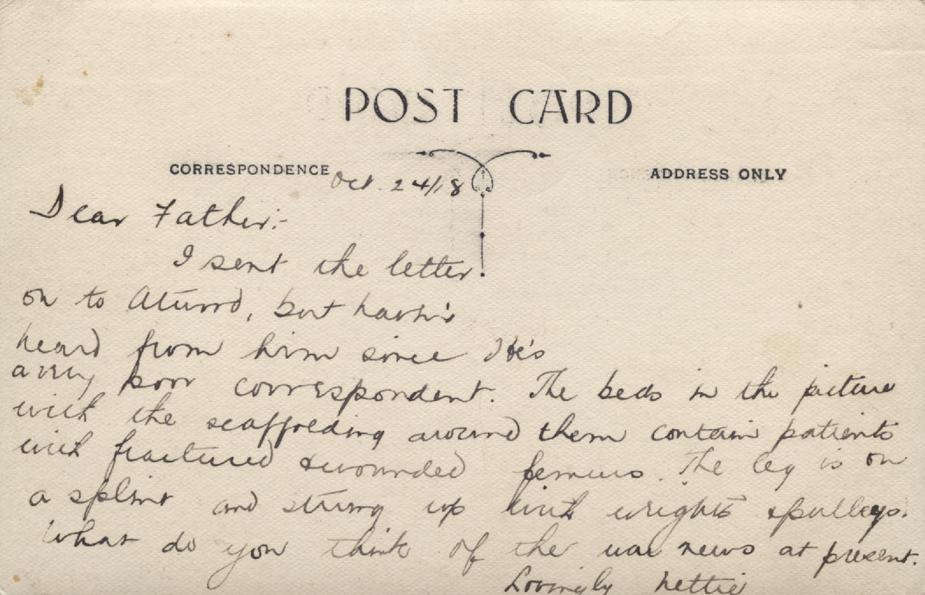 POST CARD
CORRESPONDENCE
ADDRESS ONLY
Oct. 24/18
Dear Father:-
I sent the letter
on to, but havn't
heard from him since He's
a very poor correspondent. The beds in the picture
with the scaffolding around them contain patients
with fractured & wounded femurs. The leg is on
a splint and strung up with weights & pulleys.
What do you think of the war news at present.
Lovingly Nettie